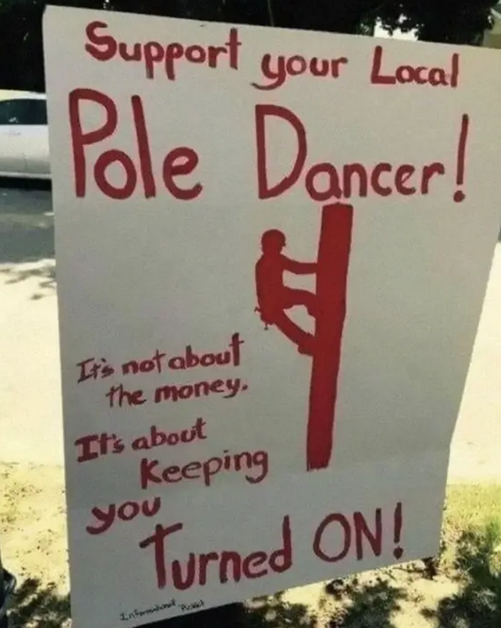 Support your Local
Pole Dancer!
It's not about
the money.
It's about
Keeping
you
Turned ON!
Informational Picket